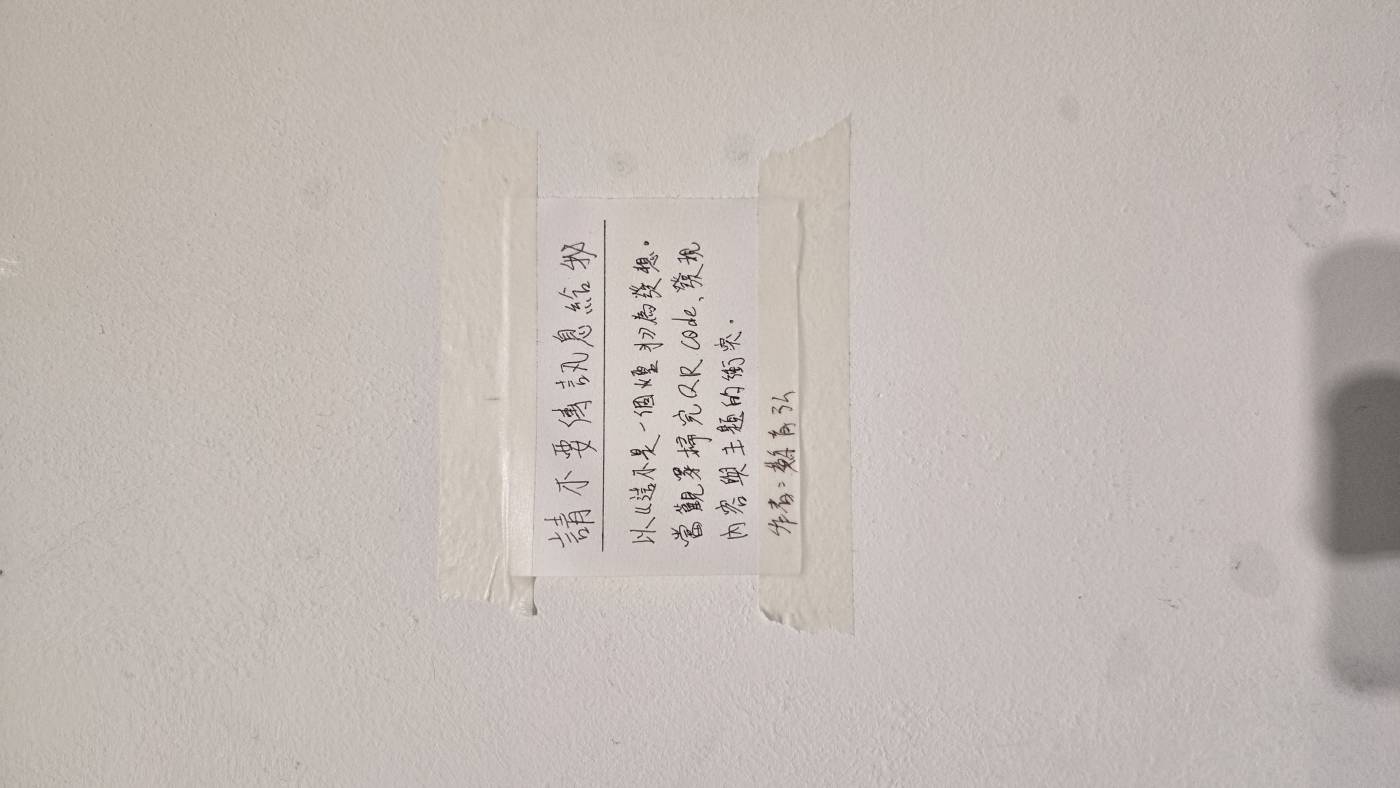 請不要傳訊息給我
以“這不是一個煙 為發想。
當觀眾掃完QR code、發現
內容與主題的衝突。
作者：